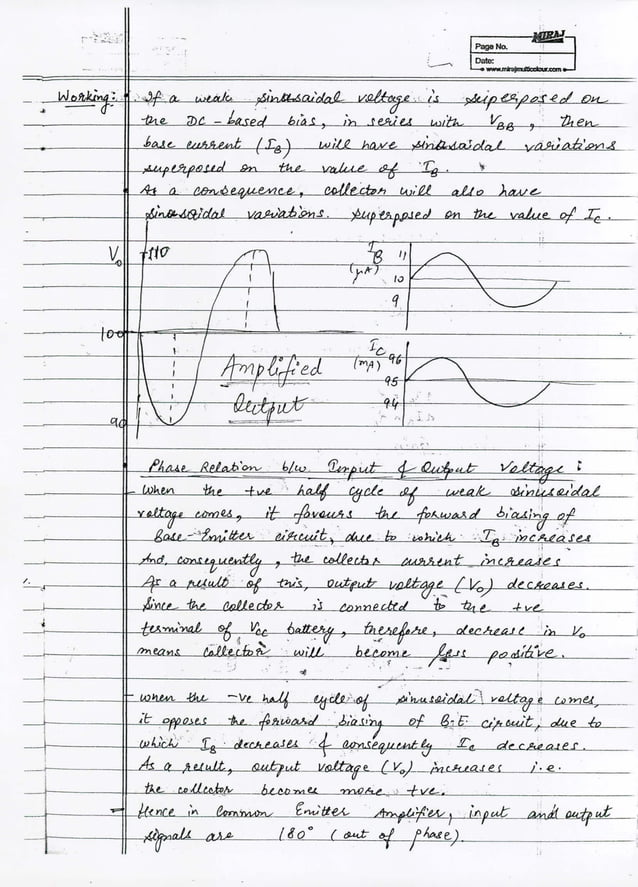 MIRAJ
Page No.
Date:
www.mirajmulticolour.com
Working:- If a weak sinusoidal voltage is superposed on
the DC - based bias, in series with VBB, then
base current (IB) will have sinusoidal variations
superposed on the value of IB.
As a consequence, collector will also have
sinusoidal variations. superposed on the value of IC.
V0 110
100
90
Amplified
Output
IB (μA) 11
10
9
IC (mA) 96
95
94
Phase Relation b/w. Input & Output Voltage :
- When the +ve half cycle of weak sinusoidal
voltage comes, it favours the forward biasing of
Base-Emitter circuit, due to which IB increases
And, consequently, the collector current increases
As a result of this, output voltage (V0) decreases.
Since the collector is connected to the +ve
terminal of Vcc battery, therefore, decrease in V0
means collector will become less positive.
- When the -ve half cycle of sinusoidal voltage comes,
it opposes the forward biasing of B-E circuit, due to
which IB decreases & consequently Ic decreases.
As a result, output voltage (V0) increases i.e.
the collector becomes more +ve.
- Hence in Common Emitter Amplifier, input and output
signals are 180° (out of phase).